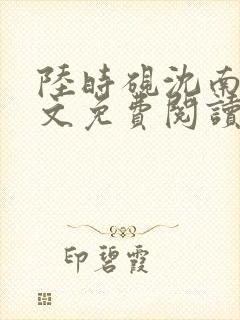 陸時硯沈南
文免費閱讀
印碧霞